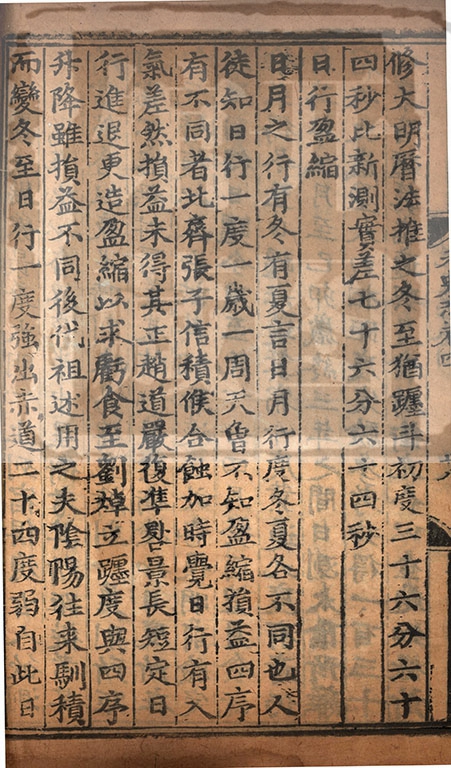 修大明曆法推之冬至猶躔斗初度三十六分六十
四秒比新測實差七十六分六十四秒
日行盈縮
日月之行有冬有夏言日月行度冬夏各不同也人
徒知日行一度一歲一周天曾不知盈縮損益四序
有不同者北齊張子信積候合蝕加時覺日行有入
氣差然損益未得其正趙道嚴復準晷景長短定日
行進退更造盈縮以求虧食至劉焯立躔度與四序
升降雖損益不同後代祖述用之夫陰陽往來馴積
而變冬至日行一度強出赤道二十四度弱自此日